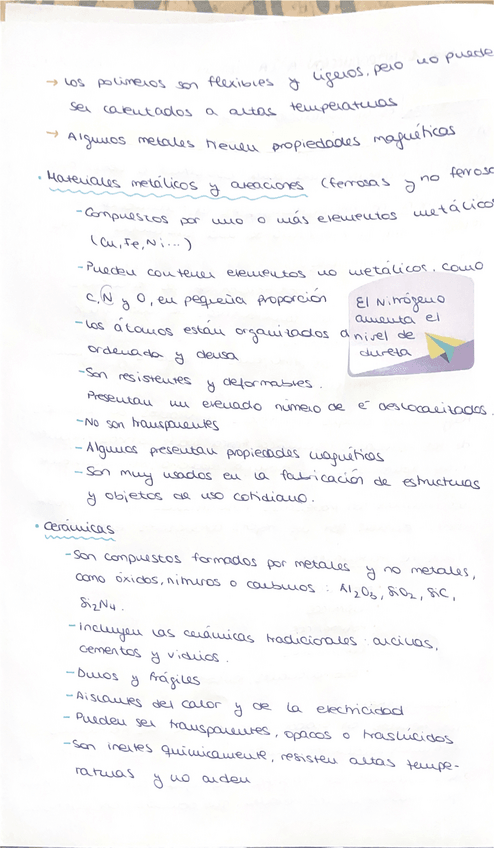 → Los polímeros son flexibles y ligeros, pero no puede
ser calentados a altas temperaturas
→ Algunos metales tienen propiedades magnéticas
• Materiales metálicos y aleaciones (ferrosas y no ferrosa
- Compuestos por uno o más elementos metálicos
(Cu, Fe, Ni...)
- Pueden contener elementos no metálicos, como
C, N y O, en pequeña proporción
El Nitrógeno
aumenta el
nivel de
dureza
- Los átomos están organizados de
ordenada y densa
- Son resistentes y deformables.
Presentan un elevado número de e⁻ deslocalizados.
- No son transparentes
- Algunos presentan propiedades magnéticas
- Son muy usados en la fabricación de estructuras
y objetos de uso cotidiano.
• Cerámicas
- Son compuestos formados por metales y no metales,
como óxidos, nitruros o carburos : Al₂O₃, SiO₂, SiC,
Si₂N₄.
- Incluyen las cerámicas tradicionales: arcillas,
cementos y vidrios.
- Duros y frágiles
- Aislantes del calor y de la electricidad
- Pueden ser transparentes, opacos o traslúcidos
- Son inertes químicamente, resisten altas tempe-
raturas y no arden